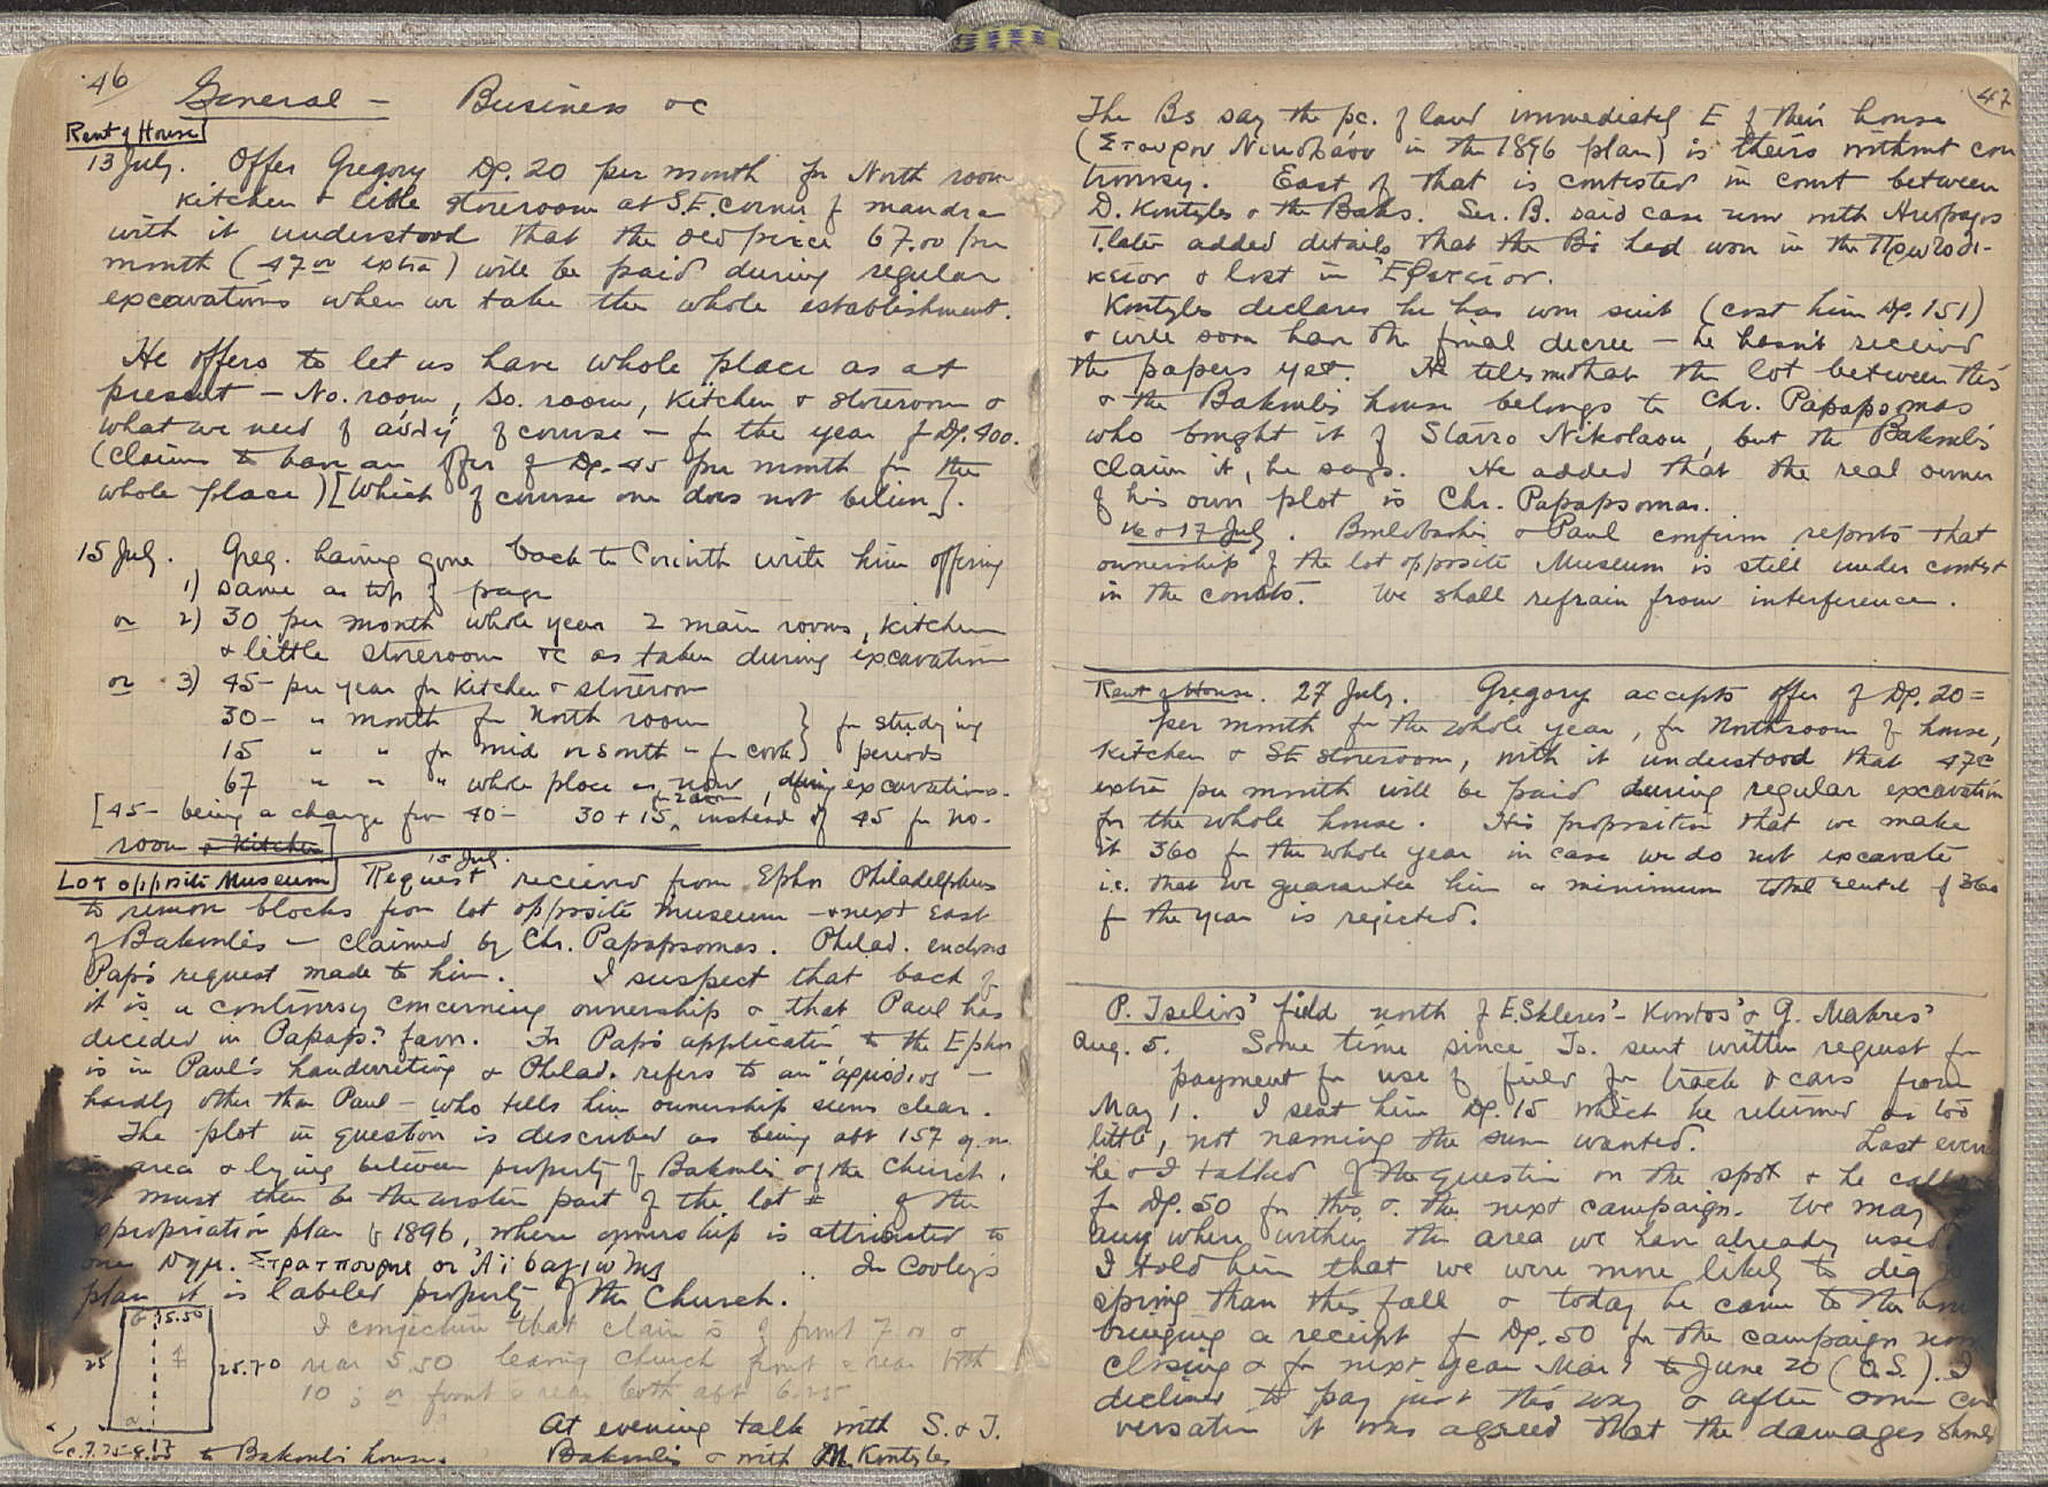 46
General – Business &c
Rent of House
13 July. Offer Gregory Dp. 20 per month for North room
kitchen & little storeroom at S.E. corner of mandra
with it understood that the old price 67.00 per
month (47.00 extra) will be paid during regular
excavations when we take the whole establishment.
He offers to let us have whole place as at
present – No. room, So. room, kitchen & storeroom &
what we need of αὐλή of course – for the year for Dp. 400.
(claims to have an offer of Dp. 45 per month for the
whole place) [Which of course one does not believe].
15 July. Greg. having gone back to Corinth write him offering
1) same as top of page
or 2) 30 per month whole year 2 main rooms, kitchen
& little storeroom &c as taken during excavation
or 3) 45– per year for kitchen & storeroom
30– " month for North room } for studying
15 " " for mid or south " for cook } periods
67 " " " whole place as now, during excavations.
[45– being a change from 40– 30 + 15 for 2 rooms instead of 45 for no.
room & kitchen]
Lot opposite Museum 15 Jul. Request received from Ephor Philadelpheus
to remove blocks from lot opposite Museum – & next East
of Bakoulis – claimed by Chr. Papapsomas. Philad. endorses
Pap's request made to him. I suspect that back of
it is a controversy concerning ownership & that Paul has
decided in Papaps.' favor. For Pap's application to the Ephor
is in Paul's handwriting & Philad. refers to an "ἁρμόδιος" –
hardly other than Paul – who tells him ownership seems clear.
The plot in question is described as being abt 157 q.m.
in area & lying between property of Bakoulis & of the Church.
It must then be the western part of the lot # of the
expropriation plan of 1896, where ownership is attributed to
one Δημ. .. In Cooley's
plan it is labeled property of the Church.
b 5.50
25 25.70
a
I conjecture that claim is of front 7.00 &
rear 5.50 leaving church front & rear both
10; or front & rear both abt 6.25
At evening talk with S. & I.
c. 7.75-8.00 to Bakoulis house. Bakoulis & with M. Kontyles
47
The Bs say the pc. of land immediately E of their house
(Σταυρου Νικολάου in the 1896 plan) is theirs without con
troversy. East of that is contested in court between
D. Kontyles & the Baks. Ser. B. said case now with Areopagos
I. later added details that the Bs had won in the Πρωτοδι-
κεῖον & lost in Ἐφετεῖον.
Kontyles declares he has won suit (cost him Dp. 151)
& will soon have the final decree – he hasn't received
the papers yet. He tells me that the lot between this
& the Bakoulis house belongs to Chr. Papapsomas
who bought it of Stavro Nikolaou, but the Bakoulis
claim it, he says. He added that the real owner
of his own plot is Chr. Papapsomas.
16 & 17 July. Boulobashi & Paul confirm reports that
ownership of the lot opposite Museum is still under contest
in the courts. We shall refrain from interference.
Rent of House. 27 July. Gregory accepts offer of Dp. 20=
per month for the whole year, for North room of house,
kitchen & SE storeroom, with it understood that 47=
extra per month will be paid during regular excavation
for the whole house. His proposition that we make
it 360 for the whole year in case we do not excavate
i.e. that we guarantee him a minimum total rental of 360
for the year is rejected.
P. Tselios' field north of E. Skleres'– Kontos' & G. Makres'
Aug. 5. Some time since Ts. sent written request for
payment for use of field for track & cars from
May 1. I sent him Dp. 15 which he returned as too
little, not naming the sum wanted. Last even
he & I talked of the question on the spot & he called
for Dp. 50 for this & the next campaign. We may
anywhere within the area we have already used.
I told him that we were more likely to dig
spring than this fall & today he came to the
bringing a receipt for Dp. 50 for the campaign now
closing & for next year Mar 1 to June 20 (O.S.). I
declined to pay just this way & after some con
versation it was agreed that the damages should